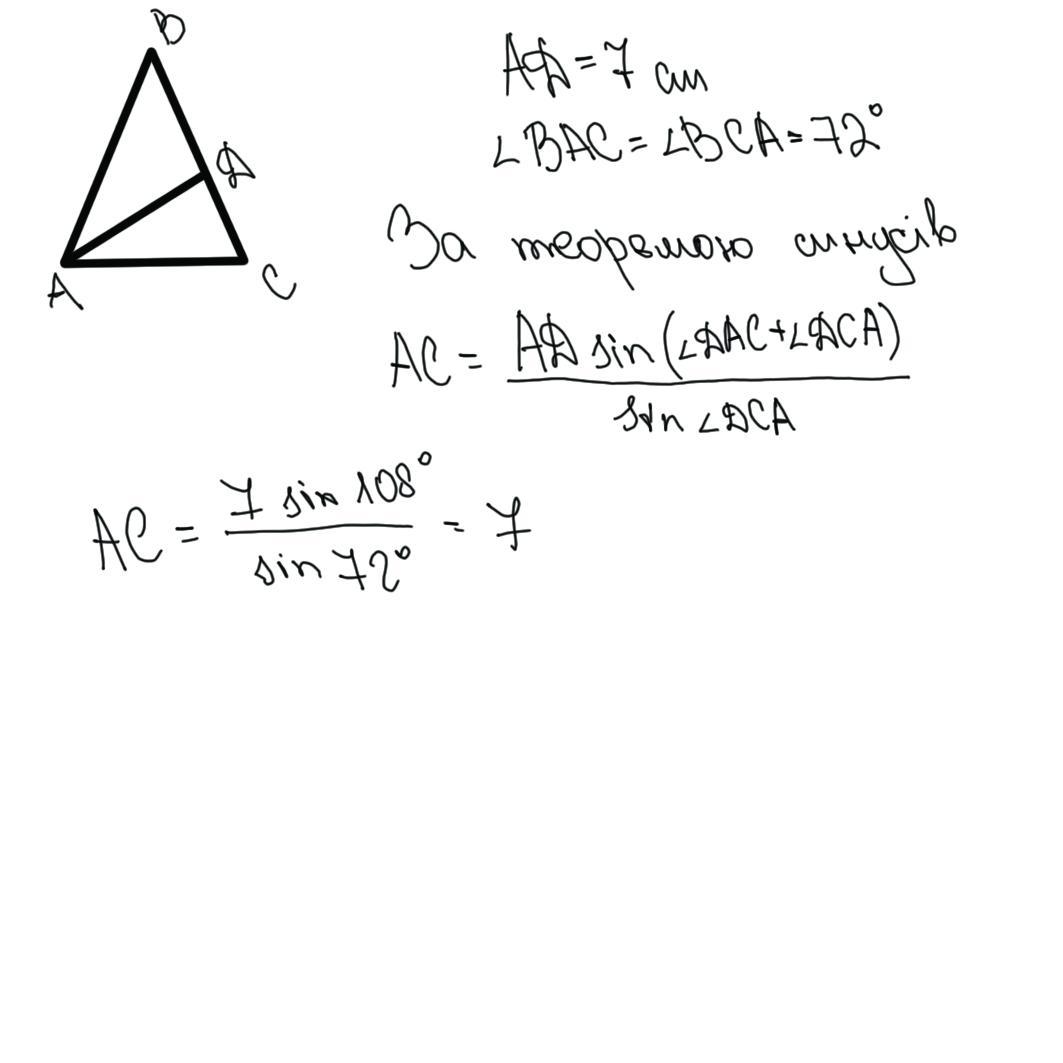 B
D
A
C
AD = 7 cm
∠BAC = ∠BCA = 72°
За теоремою синусів
AC = AD sin(∠DAC+∠DCA) / sin ∠DCA
AC = 7 sin 108° / sin 72° = 7